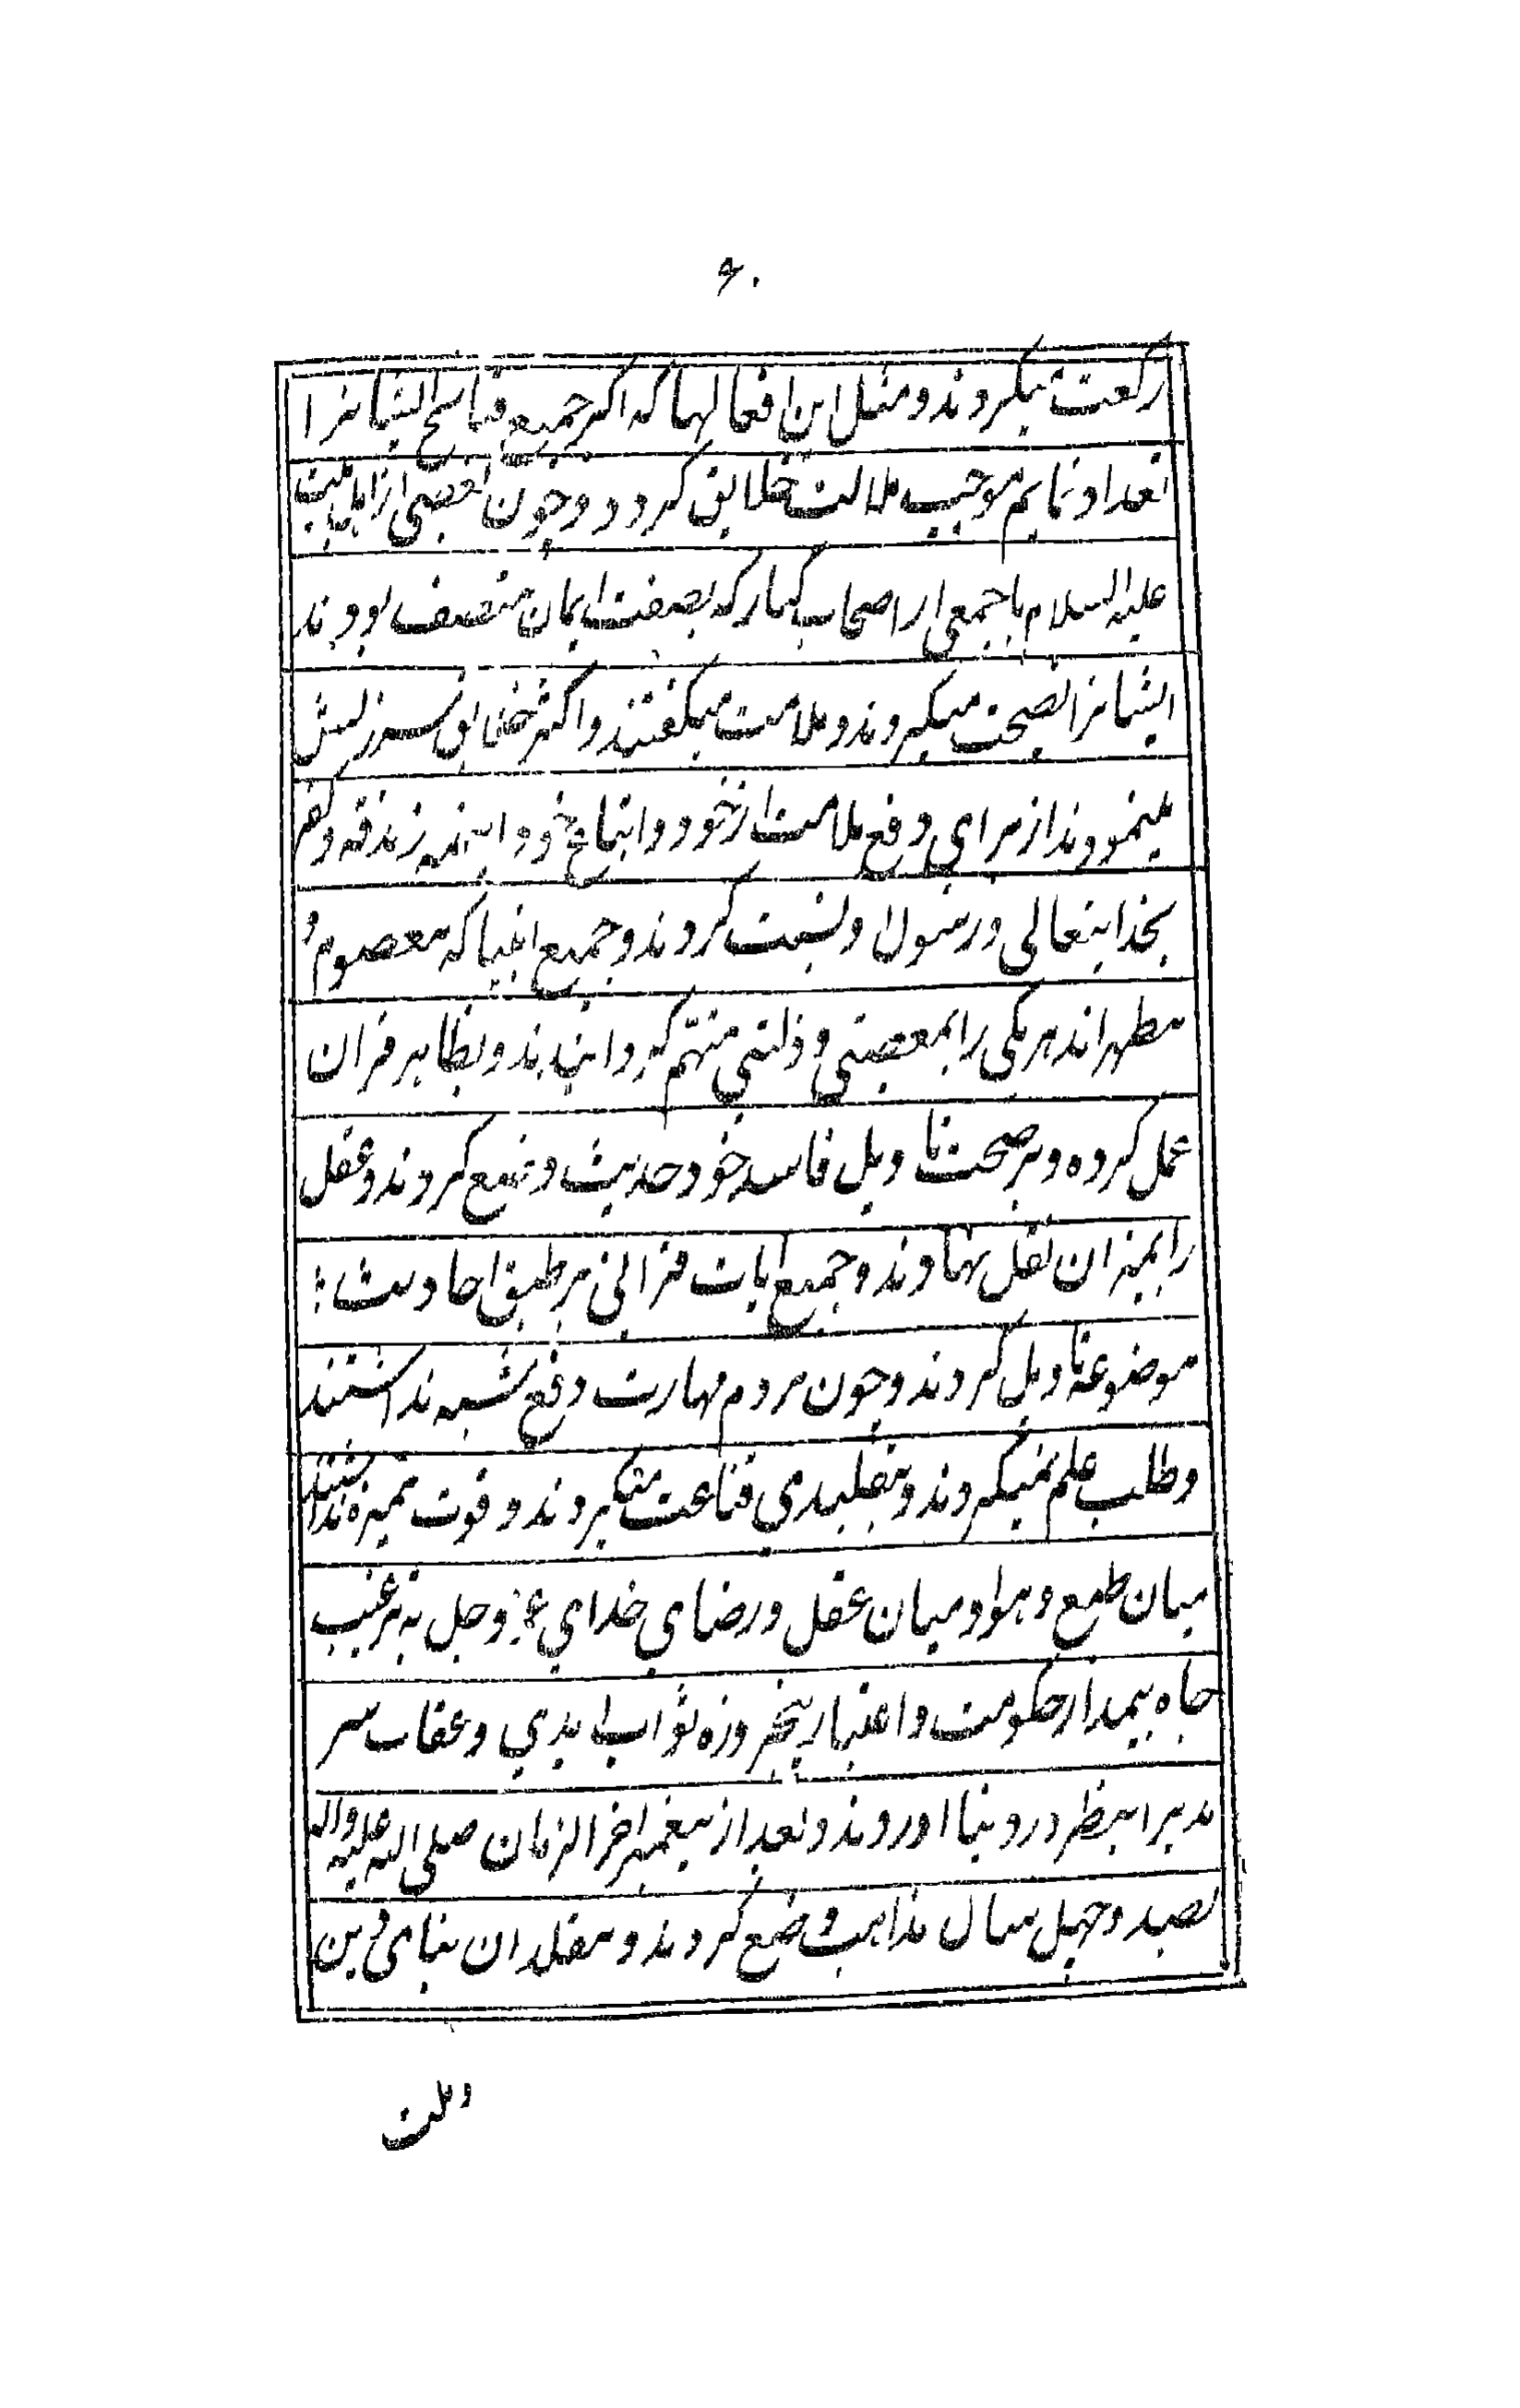 ۶۰
رکعت میکردند و مثل این افعالها که اکر جمیع قبایح ایشانرا
تعداد نمایم موجب ملالت خلایق کردد و چون بعضی از اهلبیت
علیه السلام با جمعی از اصحاب کبار که بصفت ایمان متصف بودند
ایشانرا نصیحت میکردند و ملامت میکفتند و اکثر خلایق سرزنش
مینمودند از برای دفع ملامت از خود و اتباع خود این زندقه و کفر
بخدایتعالی و رسول او نسبت کردند و جمیع انبیا که معصوم و
مطهراند هر یکی را بمعصیتی و ذلتی متهم کردانیدند و بظاهر قران
عمل کرده و بر صحت تاویل فاسد خود حدیث وضع کردند و عقل
را بمیزان نقل نهادند و جمیع ایات قرانی بر طبق احادیث
موضوعه تاویل کردند و چون مردم مهارت دفع شبه نداشتند
و طلب علم نمیکردند و بتقلیدی قناعت میکردند و قوت ممیزه نداشتند
میان طمع و هوا و میان عقل و رضای خدای عز و جل به ترغیب
جاه بیمدار حکومت و اعتبار پنجروزه ثواب ابدی و عقاب سر
مدیرا بنظر در دنیا اوردند و بعد از پیغمبر اخر الزمان صلی الله علیه واله
بصد و چهل سال مذاهب وضع کردند و مقلدان بنای دین
و ملت